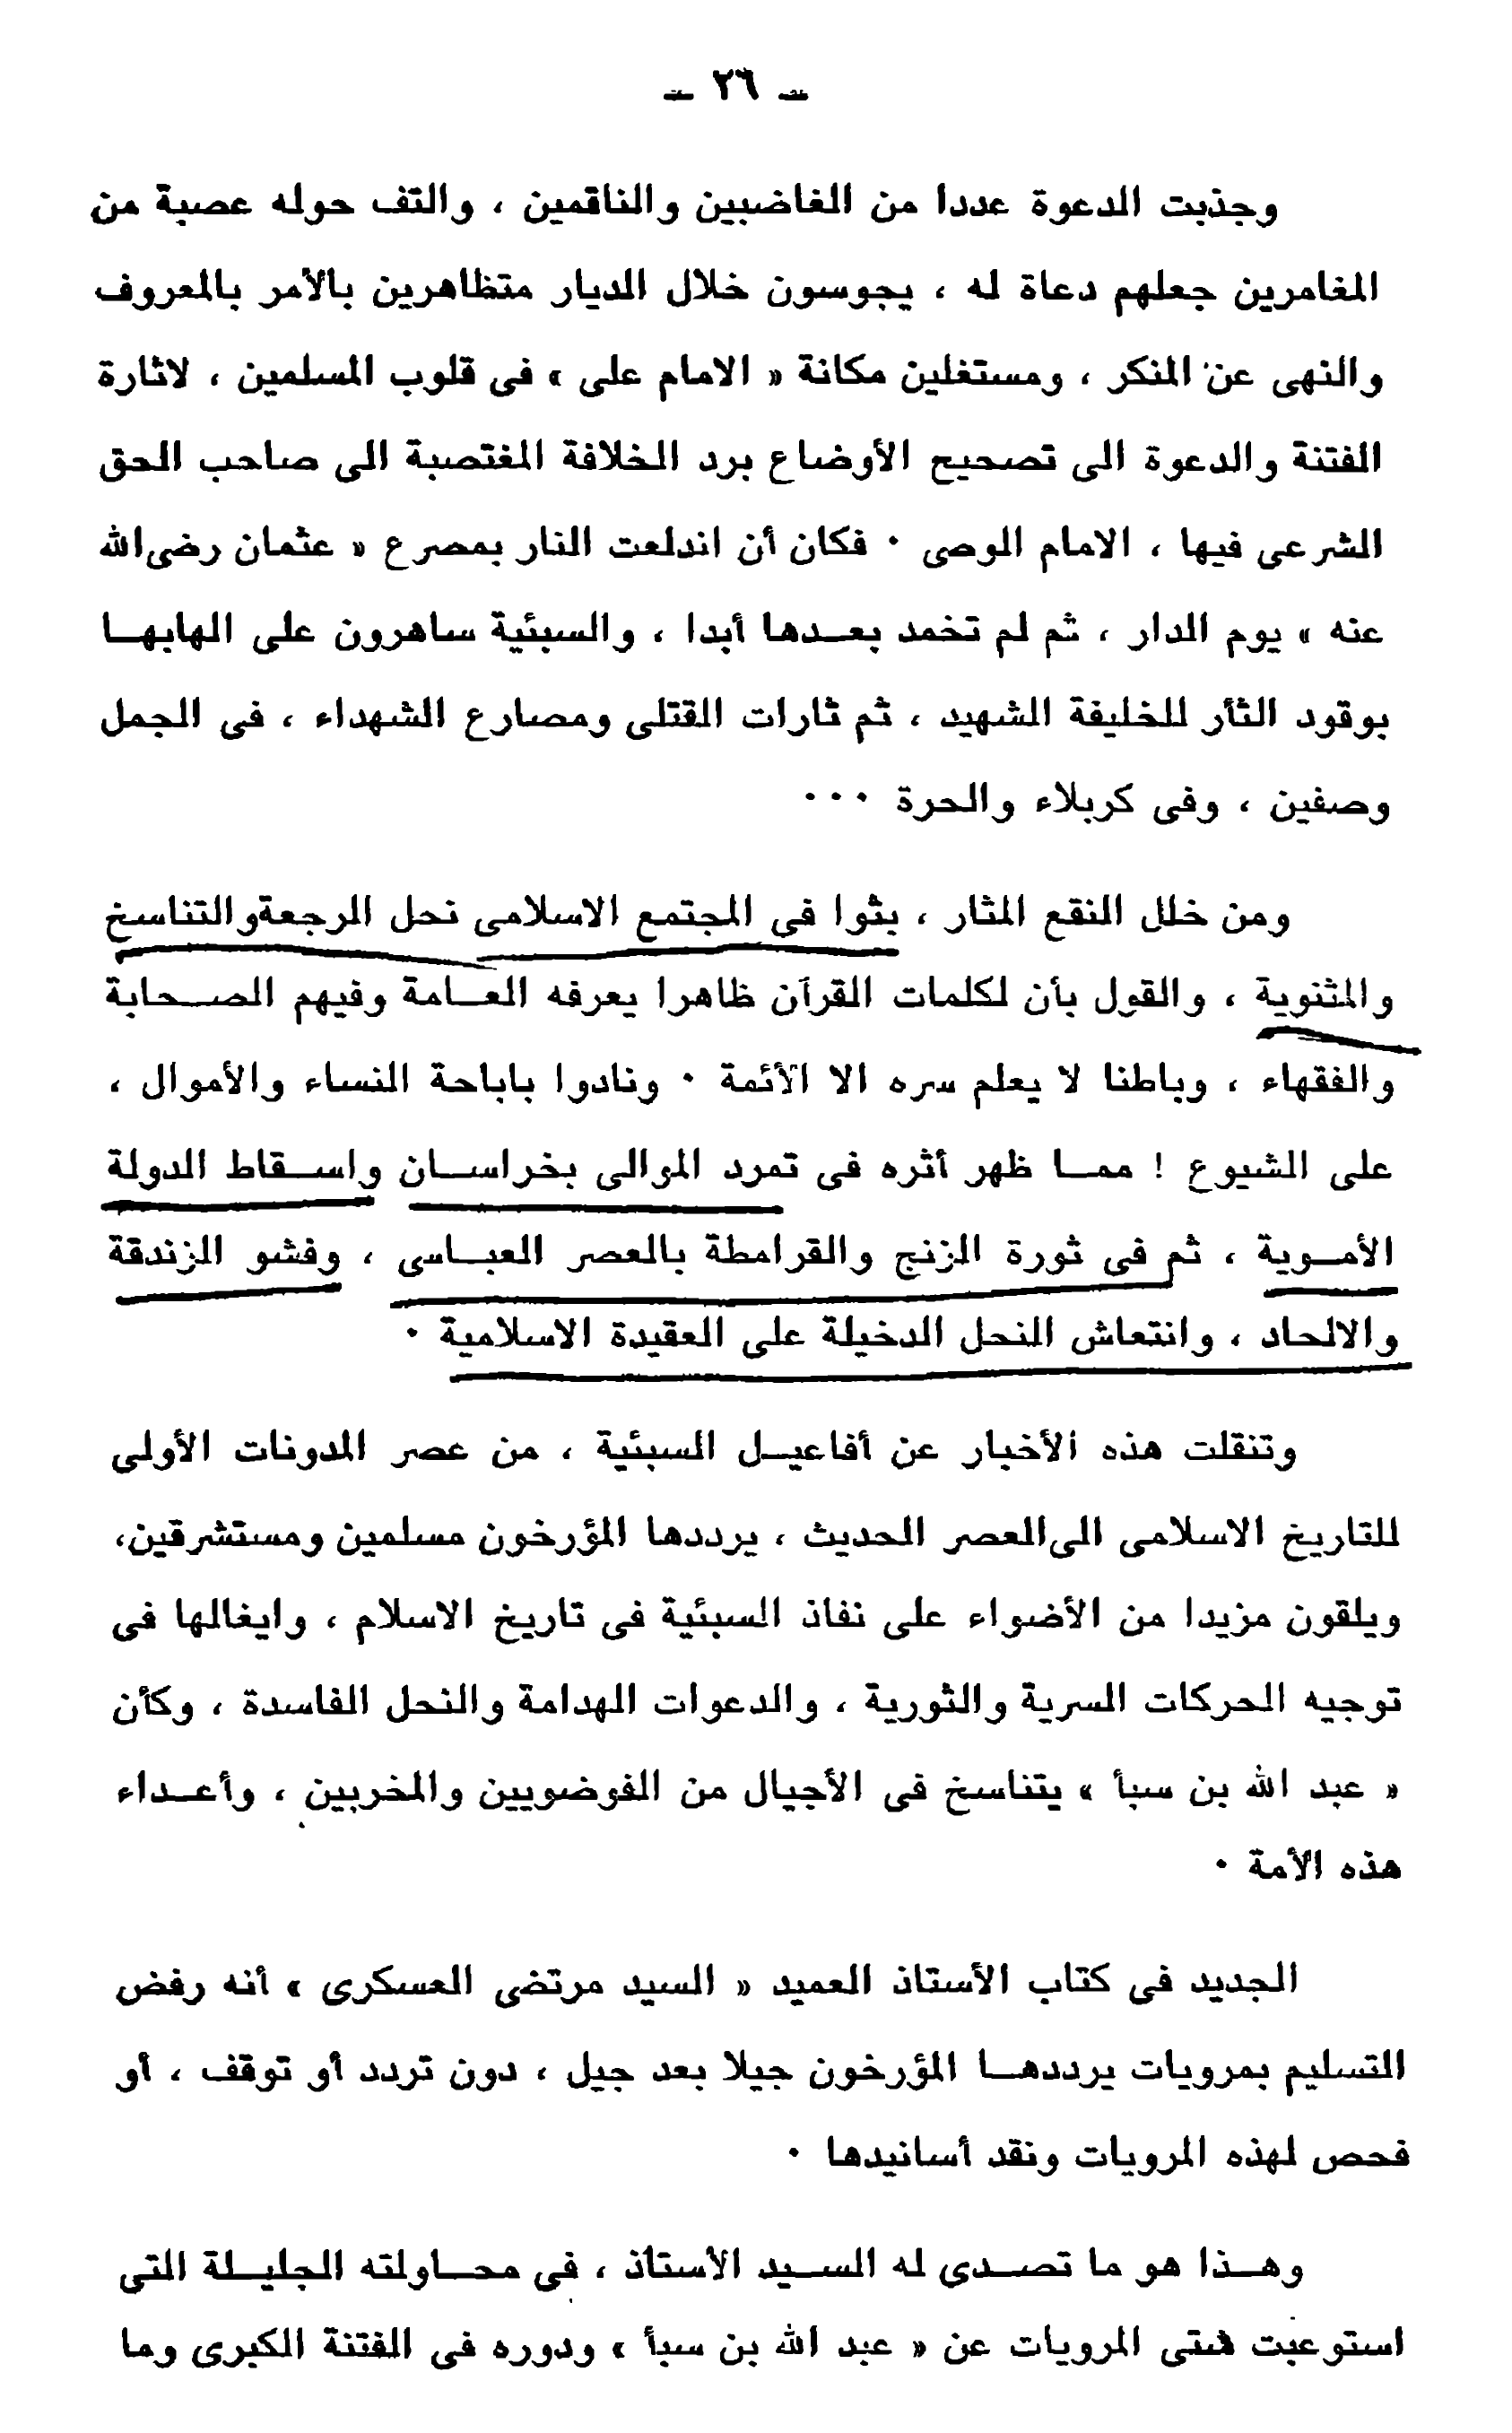 ـ ٢٦ ـ
وجذبت الدعوة عددا من الغاضبين والناقمين ، والتف حوله عصبة من
المغامرين جعلهم دعاة له ، يجوسون خلال الديار متظاهرين بالأمر بالمعروف
والنهى عن المنكر ، ومستغلين مكانة « الامام على » فى قلوب المسلمين ، لاثارة
الفتنة والدعوة الى تصحيح الأوضاع برد الخلافة المغتصبة الى صاحب الحق
الشرعى فيها ، الامام الوصى ٠ فكان أن اندلعت النار بمصرع « عثمان رضى الله
عنه » يوم الدار ، ثم لم تخمد بعـدها أبدا ، والسبئية ساهرون على الهابهـا
بوقود الثأر للخليفة الشهيد ، ثم ثارات القتلى ومصارع الشهداء ، فى الجمل
وصفين ، وفى كربلاء والحرة ٠٠٠
ومن خلل النقع المثار ، بثوا فى المجتمع الاسلامى نحل الرجعة والتناسخ
والمثنوية ، والقول بأن لكلمات القرآن ظاهرا يعرفه العـامة وفيهم الصـحابة
والفقهاء ، وباطنا لا يعلم سره الا الأئمة ٠ ونادوا باباحة النساء والأموال ،
على الشيوع ! ممـا ظهر أثره فى تمرد الموالى بخراسـان واسـقاط الدولة
الأمـوية ، ثم فى ثورة الزنج والقرامطة بالعصر العبـاسى ، وفشو الزندقة
والالحاد ، وانتعاش النحل الدخيلة على العقيدة الاسلامية ٠
وتنقلت هذه الأخبار عن أفاعيـل السبئية ، من عصر المدونات الأولى
للتاريخ الاسلامى الى العصر الحديث ، يرددها المؤرخون مسلمين ومستشرقين،
ويلقون مزيدا من الأضواء على نفاذ السبئية فى تاريخ الاسلام ، وايغالها فى
توجيه الحركات السرية والثورية ، والدعوات الهدامة والنحل الفاسدة ، وكأن
« عبد الله بن سبأ » يتناسخ فى الأجيال من الفوضويين والمخربين ، وأعـداء
هذه الأمة ٠
الجديد فى كتاب الأستاذ العميد « السيد مرتضى العسكرى » أنه رفض
التسليم بمرويات يرددهـا المؤرخون جيلا بعد جيل ، دون تردد أو توقف ، أو
فحص لهذه المرويات ونقد أسانيدها ٠
وهـذا هو ما تصـدى له السـيد الأستاذ ، فى محـاولته الجليـلة التى
استوعبت شتى المرويات عن « عبد الله بن سبأ » ودوره فى الفتنة الكبرى وما